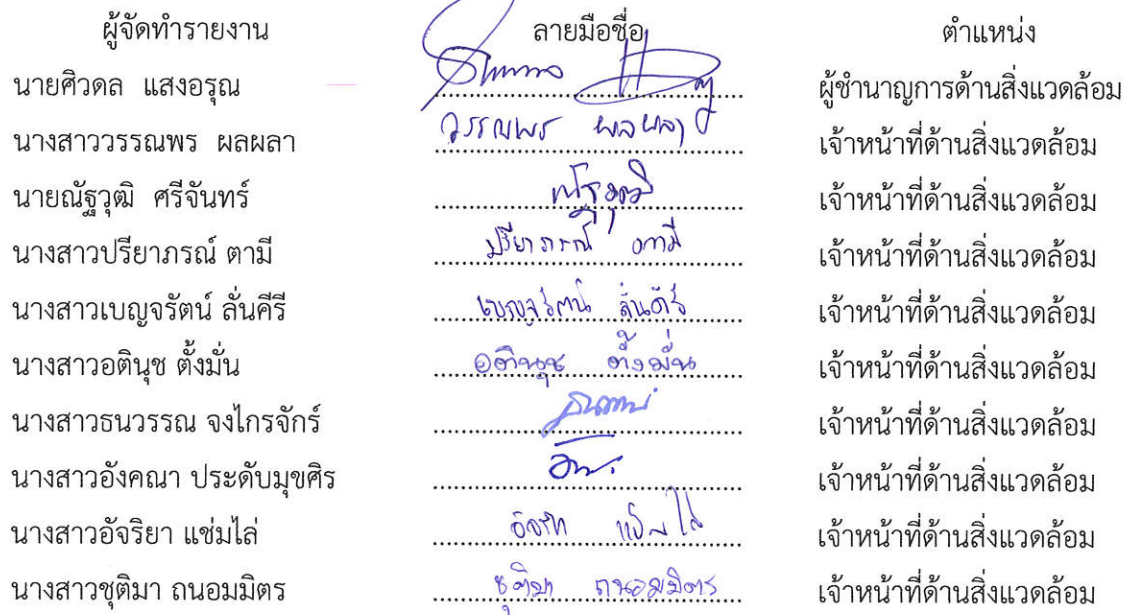 ผู้จัดทำรายงาน ลายมือชื่อ ตำแหน่ง
นายศิวดล แสงอรุณ ผู้ชำนาญการด้านสิ่งแวดล้อม
นางสาววรรณพร ผลผลา วรรณพร ผลผลา เจ้าหน้าที่ด้านสิ่งแวดล้อม
นายณัฐวุฒิ ศรีจันทร์ ณัฐวุฒิ เจ้าหน้าที่ด้านสิ่งแวดล้อม
นางสาวปรียาภรณ์ ตามี ปรียาภรณ์ ตามี เจ้าหน้าที่ด้านสิ่งแวดล้อม
นางสาวเบญจรัตน์ ลั่นคีรี เบญจรัตน์ ลั่นคีรี เจ้าหน้าที่ด้านสิ่งแวดล้อม
นางสาวอตินุช ตั้งมั่น อตินุช ตั้งมั่น เจ้าหน้าที่ด้านสิ่งแวดล้อม
นางสาวธนวรรณ จงไกรจักร์ เจ้าหน้าที่ด้านสิ่งแวดล้อม
นางสาวอังคณา ประดับมุขศิร เจ้าหน้าที่ด้านสิ่งแวดล้อม
นางสาวอัจริยา แช่มไล่ เจ้าหน้าที่ด้านสิ่งแวดล้อม
นางสาวชุติมา ถนอมมิตร ชุติมา ถนอมมิตร เจ้าหน้าที่ด้านสิ่งแวดล้อม